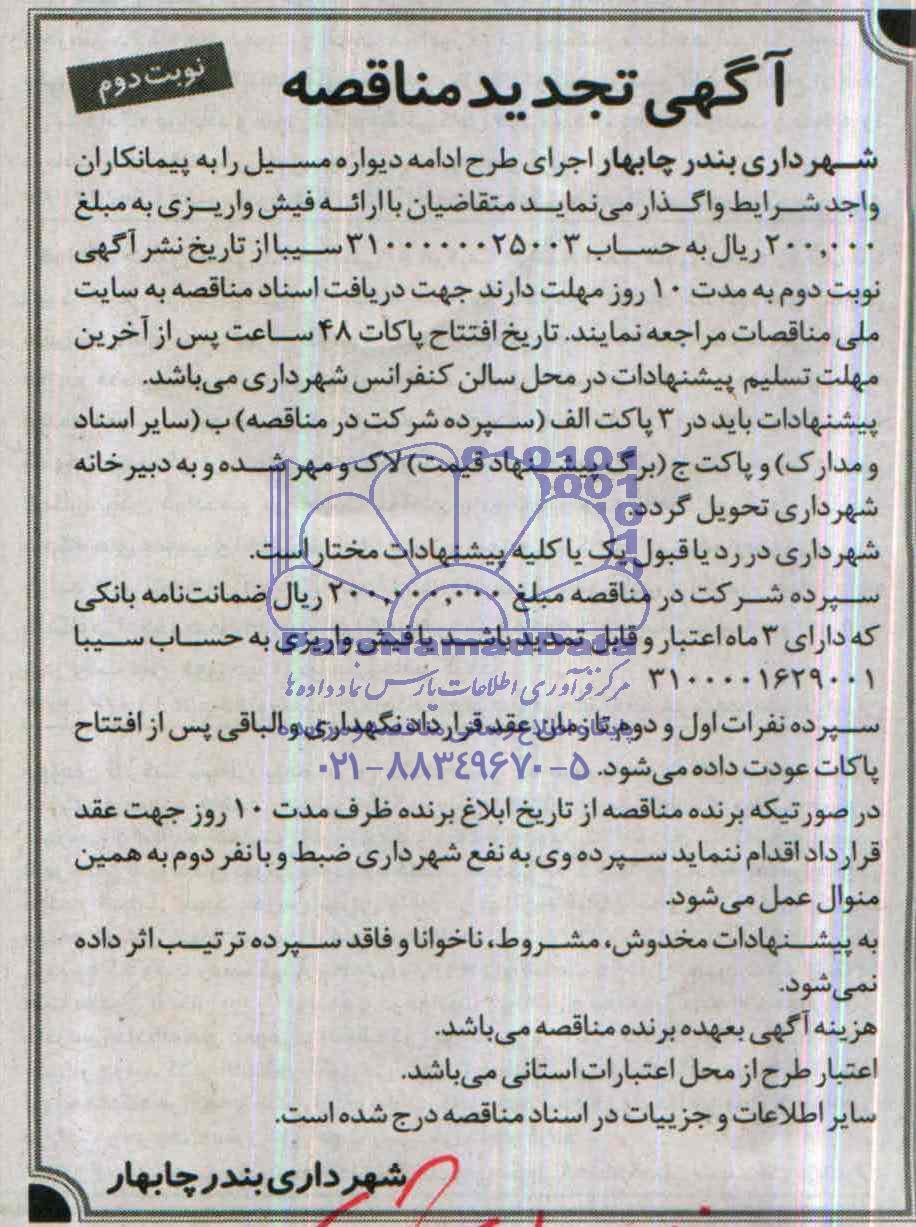 آگهی تجدید مناقصه
نوبت دوم
شهرداری بندر چابهار اجرای طرح ادامه دیواره مسیل را به پیمانکاران
واجد شرایط واگذار می‌نماید متقاضیان با ارائه فیش واریزی به مبلغ
۲۰۰,۰۰۰ ریال به حساب ۳۱۰۰۰۰۰۰۲۵۰۰۳ سیبا از تاریخ نشر آگهی
نوبت دوم به مدت ۱۰ روز مهلت دارند جهت دریافت اسناد مناقصه به سایت
ملی مناقصات مراجعه نمایند. تاریخ افتتاح پاکات ۴۸ ساعت پس از آخرین
مهلت تسلیم پیشنهادات در محل سالن کنفرانس شهرداری می‌باشد.
پیشنهادات باید در ۳ پاکت الف (سپرده شرکت در مناقصه) ب (سایر اسناد
و مدارک) و پاکت ج (برگ پیشنهاد قیمت) لاک و مهر شده و به دبیرخانه
شهرداری تحویل گردد.
شهرداری در رد یا قبول یک یا کلیه پیشنهادات مختار است.
سپرده شرکت در مناقصه مبلغ ۲۰۰,۰۰۰,۰۰۰ ریال ضمانت‌نامه بانکی
که دارای ۳ ماه اعتبار و قابل تمدید باشد یا فیش واریزی به حساب سیبا
۳۱۰۰۰۰۱۶۲۹۰۰۱
مرکز فرآوری اطلاعات پارس نماد داده‌ها
سپرده نفرات اول و دوم تا زمان عقد قرارداد نگهداری و الباقی پس از افتتاح
پاکات عودت داده می‌شود.
۰۲۱-۸۸۳۴۹۶۷۰-۵
در صورتیکه برنده مناقصه از تاریخ ابلاغ برنده ظرف مدت ۱۰ روز جهت عقد
قرارداد اقدام ننماید سپرده وی به نفع شهرداری ضبط و با نفر دوم به همین
منوال عمل می‌شود.
به پیشنهادات مخدوش، مشروط، ناخوانا و فاقد سپرده ترتیب اثر داده
نمی‌شود.
هزینه آگهی بعهده برنده مناقصه می‌باشد.
اعتبار طرح از محل اعتبارات استانی می‌باشد.
سایر اطلاعات و جزییات در اسناد مناقصه درج شده است.
شهرداری بندر چابهار